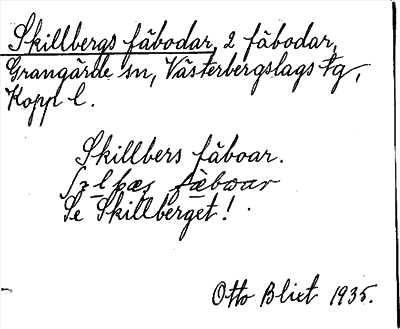 Skillbergs fäbodar, 2 fäbodar,
Grangärde sn, Västerbergslags tg,
Kopp l.
Skillbers fäboar.
fäboar
Se Skillberget!
Otto Blixt 1935.